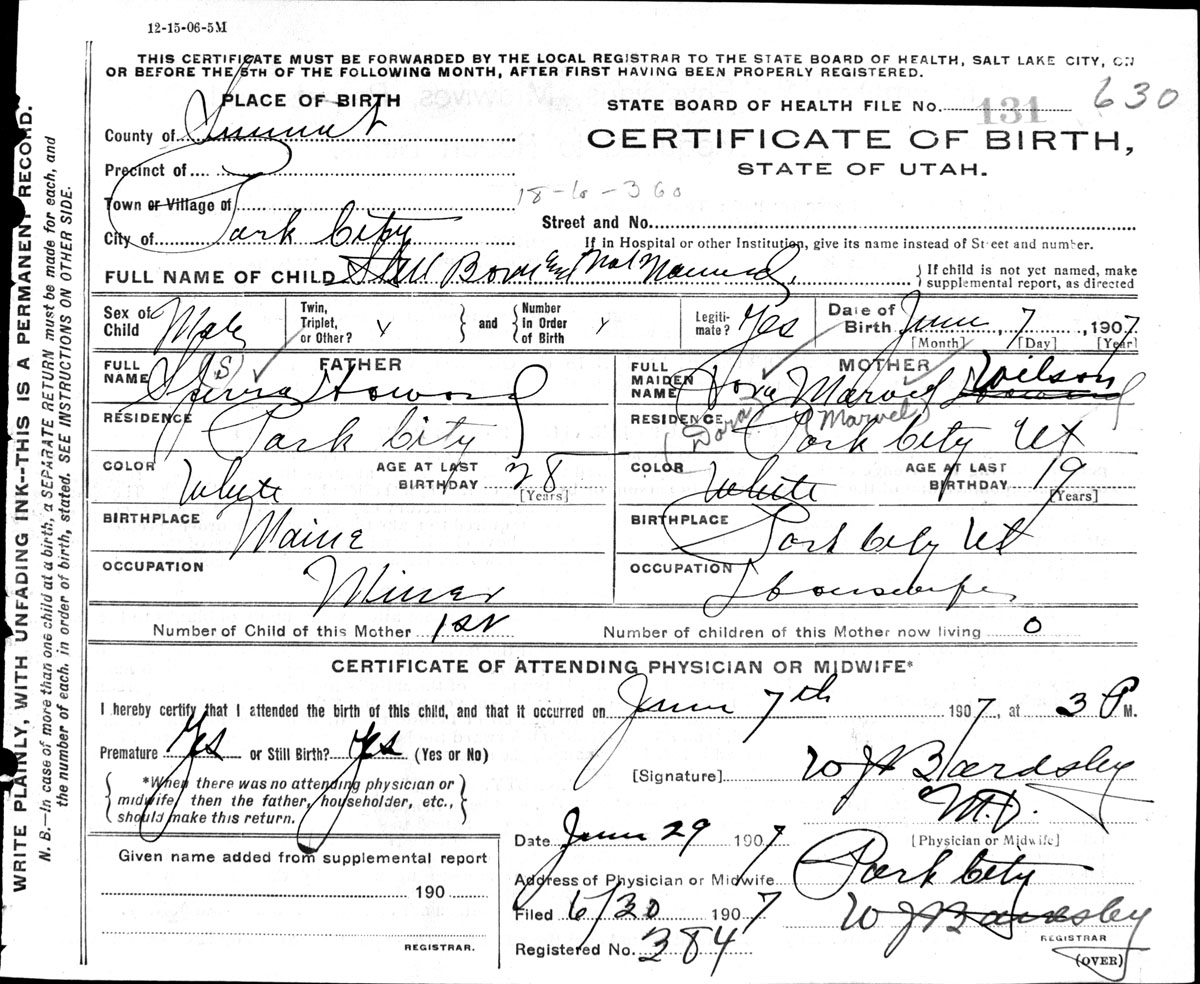 12-15-06-5M
THIS CERTIFICATE MUST BE FORWARDED BY THE LOCAL REGISTRAR TO THE STATE BOARD OF HEALTH, SALT LAKE CITY, ON
OR BEFORE THE 5TH OF THE FOLLOWING MONTH, AFTER FIRST HAVING BEEN PROPERLY REGISTERED.
PLACE OF BIRTH
STATE BOARD OF HEALTH FILE No. 131 630
County of Summit
CERTIFICATE OF BIRTH,
STATE OF UTAH.
Precinct of
Town or Village of
18-6-360
City of Park City
Street and No.
If in Hospital or other Institution, give its name instead of Street and number.
FULL NAME OF CHILD Still Born Not Named
If child is not yet named, make supplemental report, as directed
Sex of Child Male
Twin, Triplet, or Other?
and Number in Order of Birth
Legitimate? Yes
Date of Birth June, 7, 1907
[Month] [Day] [Year]
FATHER
FULL NAME Howard
(S)
RESIDENCE Park City
COLOR White
AGE AT LAST BIRTHDAY 28
[Years]
BIRTHPLACE Maine
OCCUPATION Miner
MOTHER
FULL MAIDEN NAME Dora Marvel Wilson
(Dora) (Marvel)
RESIDENCE Park City Ut
COLOR White
AGE AT LAST BIRTHDAY 19
[Years]
BIRTHPLACE Park City Ut
OCCUPATION Housewife
Number of Child of this Mother 1st
Number of children of this Mother now living 0
CERTIFICATE OF ATTENDING PHYSICIAN OR MIDWIFE*
I hereby certify that I attended the birth of this child, and that it occurred on June 7th 1907, at 3 P M.
Premature Yes or Still Birth? Yes (Yes or No)
*When there was no attending physician or
midwife, then the father, householder, etc.,
should make this return.
[Signature] W J Bardsley
M.D.
[Physician or Midwife]
Date June 29 1907
Address of Physician or Midwife Park City
Filed 6/30 1907
W J Bardsley
REGISTRAR
Registered No. 384
(OVER)
Given name added from supplemental report
190
REGISTRAR.
WRITE PLAINLY, WITH UNFADING INK—THIS IS A PERMANENT RECORD.
N. B.—In case of more than one child at a birth, a SEPARATE RETURN must be made for each, and
the number of each, in order of birth, stated. SEE INSTRUCTIONS ON OTHER SIDE.